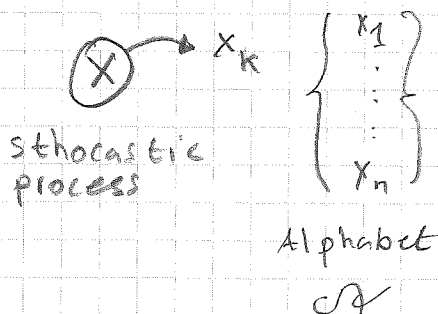 X
x_k
sthocastic
process
x_1
x_n
Alphabet
𝒜